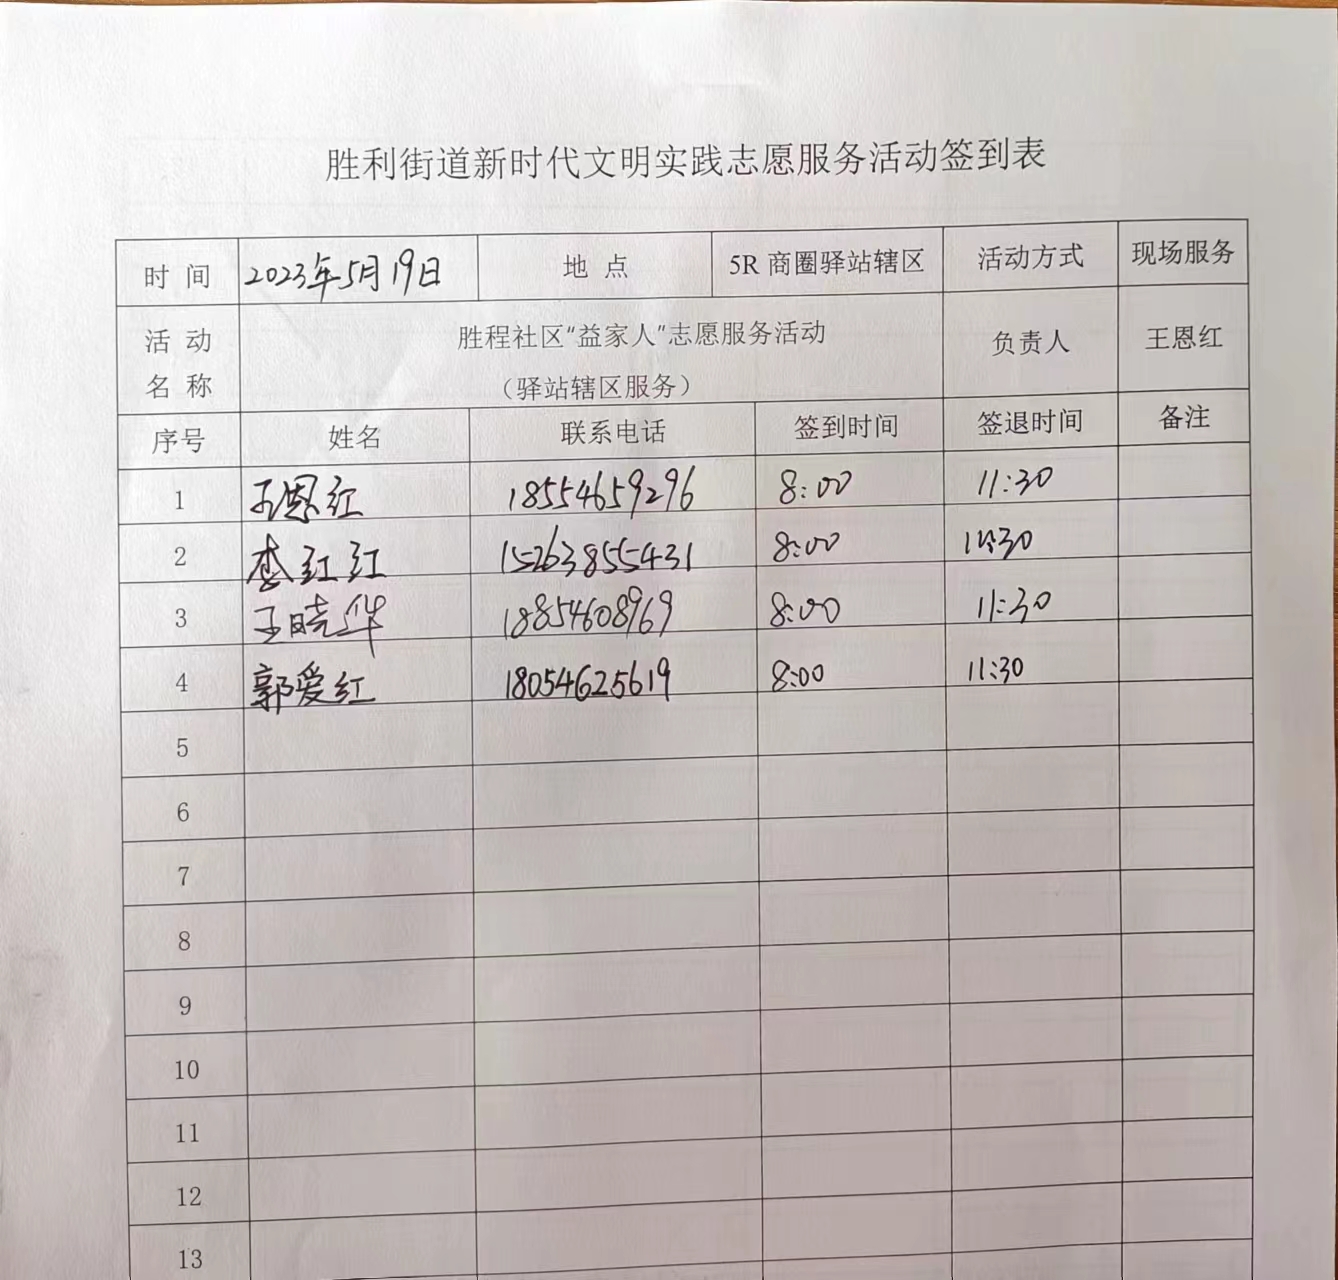 胜利街道新时代文明实践志愿服务活动签到表
时 间 2023年5月19日 地 点 5R商圈驿站辖区 活动方式 现场服务
活 动 名 称 胜程社区“益家人”志愿服务活动 负责人 王恩红
（驿站辖区服务）
序号 姓名 联系电话 签到时间 签退时间 备注
1 王恩红 18554659296 8:00 11:30
2 李红红 15263855431 8:00 11:30
3 王晓华 18854608969 8:00 11:30
4 郭爱红 18054625619 8:00 11:30
5
6
7
8
9
10
11
12
13